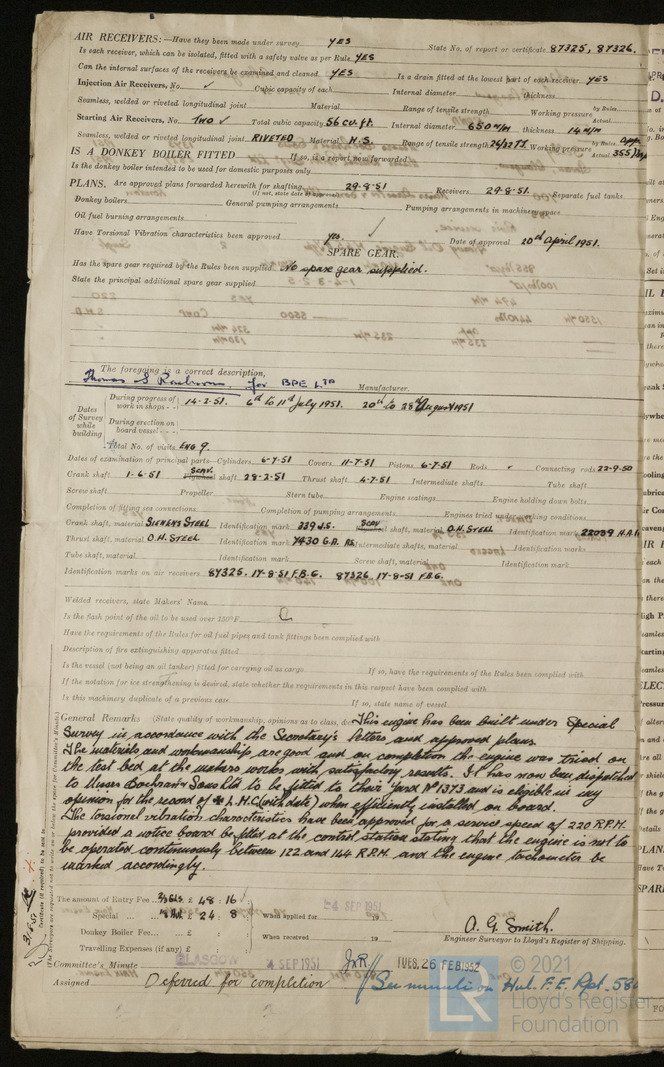 AIR RECEIVERS:—Have they been made under survey YES State No. of report or certificate 87325, 87326.
Is each receiver, which can be isolated, fitted with a safety valve as per Rule YES
Can the internal surfaces of the receivers be examined and cleaned YES Is a drain fitted at the lowest part of each receiver YES
Injection Air Receivers, No. ✓ Cubic capacity of each Internal diameter thickness
Seamless, welded or riveted longitudinal joint Material Range of tensile strength Working pressure by Rules Actual
Starting Air Receivers, No. TWO ✓ Total cubic capacity 56 CU. ft. Internal diameter 650 M/M thickness 14 M/M
Seamless, welded or riveted longitudinal joint RIVETED Material M.S. Range of tensile strength Working pressure by Rules Actual
IS A DONKEY BOILER FITTED If so, is a report now forwarded
Is the donkey boiler intended to be used for domestic purposes only
PLANS. Are approved plans forwarded herewith for shafting 29-8-51 Receivers 29-8-51. Separate fuel tanks
(If not, state date of approval)
Donkey boilers General pumping arrangements Pumping arrangements in machinery space
Oil fuel burning arrangements
Have Torsional Vibration characteristics been approved yes. ✓ Date of approval 20th April 1951.
SPARE GEAR.
Has the spare gear required by the Rules been supplied No spare gear supplied.
State the principal additional spare gear supplied
The foregoing is a correct description,
for BPE LTD Manufacturer.
Dates of Survey while building
During progress of work in shops - - 14-2-51. 6th to 11th July 1951. 20th to 28th August 1951
During erection on board vessel - - -
Total No. of visits ENG 9.
Dates of examination of principal parts—Cylinders 6-7-51 Covers 11-7-51 Pistons 6-7-51 Rods ✓ Connecting rods 22-9-50
Crank shaft 1-6-51 SCAV. shaft 28-2-51 Thrust shaft 4-7-51 Intermediate shafts Tube shaft
Screw shaft Propeller Stern tube Engine seatings Engine holding down bolts
Completion of fitting sea connections Completion of pumping arrangements Engines tried under working conditions
Crank shaft, material SIEMENS STEEL Identification mark 339 J.S. SCAV shaft, material O.H. STEEL Identification mark 22039 H.A.
Thrust shaft, material O.H. STEEL. Identification mark 7430 G.A. Intermediate shafts, material Identification marks
Tube shaft, material Identification mark Screw shaft, material Identification mark
Identification marks on air receivers 87325. 17-8-51 F.B.G. 87326 17-8-51 F.B.G.
Welded receivers, state Makers' Name
Is the flash point of the oil to be used over 150°F.
Have the requirements of the Rules for oil fuel pipes and tank fittings been complied with
Description of fire extinguishing apparatus fitted
Is the vessel (not being an oil tanker) fitted for carrying oil as cargo If so, have the requirements of the Rules been complied with
If the notation for ice strengthening is desired, state whether the requirements in this respect have been complied with
Is this machinery duplicate of a previous case If so, state name of vessel
General Remarks (State quality of workmanship, opinions as to class, &c. This engine has been built under Special
Survey in accordance with the Secretary's letters and approved plans.
The materials and workmanship are good and on completion the engine was tried on
the test bed at the makers works with satisfactory results. It has now been dispatched
to Messrs Sons Ltd to be fitted to their Yard No 1373 and is eligible in my
opinion for the record of L.M.C. (with date) when efficiently installed on board.
The torsional vibration characteristics have been approved for a service speed of 220 R.P.M.
provided a notice board be fitted at the control station stating that the engine is not to
be operated continuously between 122 and 144 R.P.M. and the engine tachometer be
marked accordingly.
The amount of Entry Fee £ 48 : 16
Special £ 24 : 8 When applied for -4 SEP 1951 19
Donkey Boiler Fee... £ :
When received 19
Travelling Expenses (if any) £ :
A. G. Smith.
Engineer Surveyor to Lloyd's Register of Shipping.
Committee's Minute GLASGOW 4 SEP 1951 TUES. 26 FEB 1952
Assigned Deferred for completion See minute on Hul. F.E. Rpt. 580
LR © 2021
Lloyd's Register
Foundation